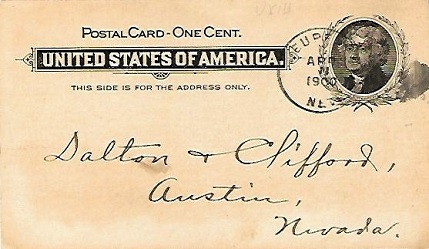 POSTAL CARD - ONE CENT.
UNITED STATES OF AMERICA.
THIS SIDE IS FOR THE ADDRESS ONLY.
EUR
APR
NE
Dalton & Clifford,
Austin,
Nevada.